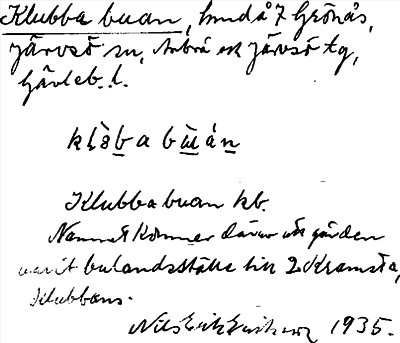 Klubba buan, hund å 7 Grönås,
Järvsö sn, Arbrå och Järvsö tg,
Gävleb. l.
klòba bùán
Klubba buan kb.
Namnet kommer därav att gården
varit bulandsställe till 2 Kramsta,
Klubbans.
Nils Erik 1935.